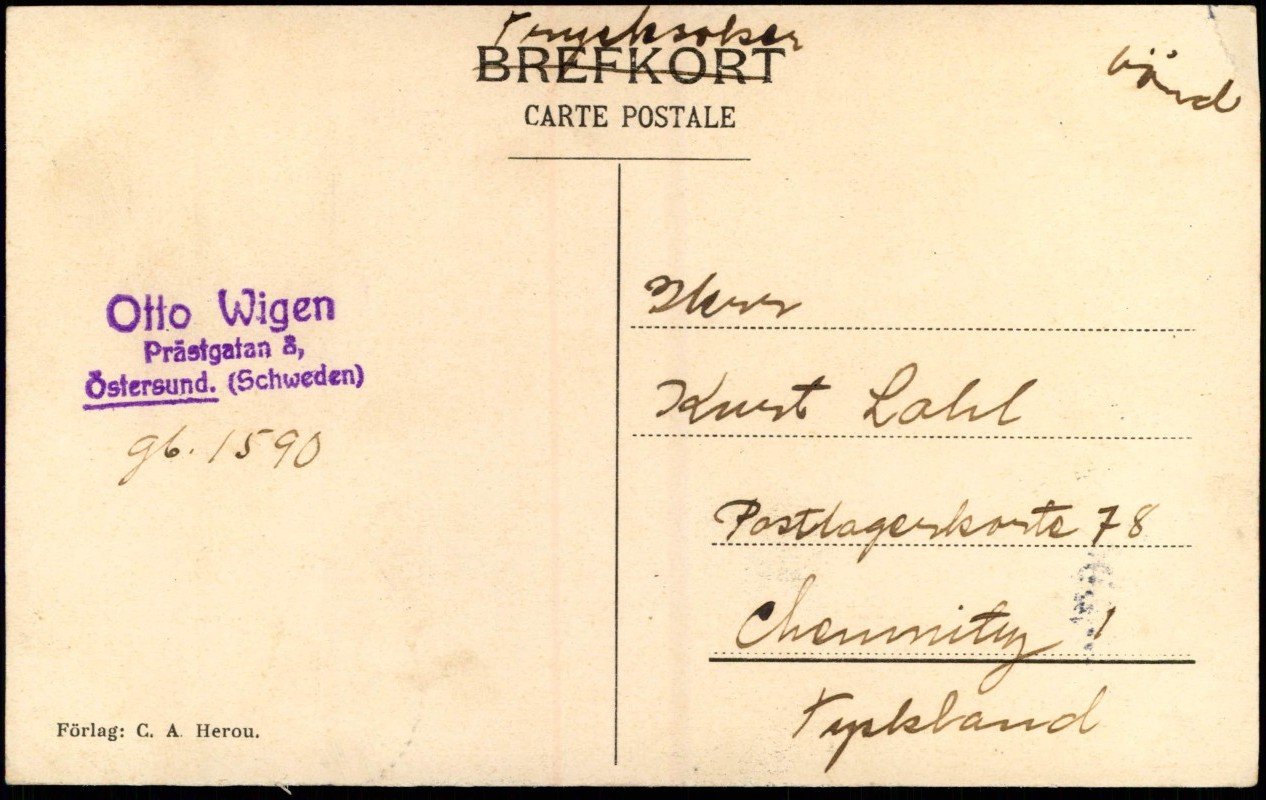 Trycksaker
BREFKORT
CARTE POSTALE
Otto Wigen
Prästgatan 8,
Östersund. (Schweden)
gb. 1590
Förlag: C. A. Herou.
Herr
Kurt Lahl
Postlagerkarte 78
Chemnitz 1
Tyskland